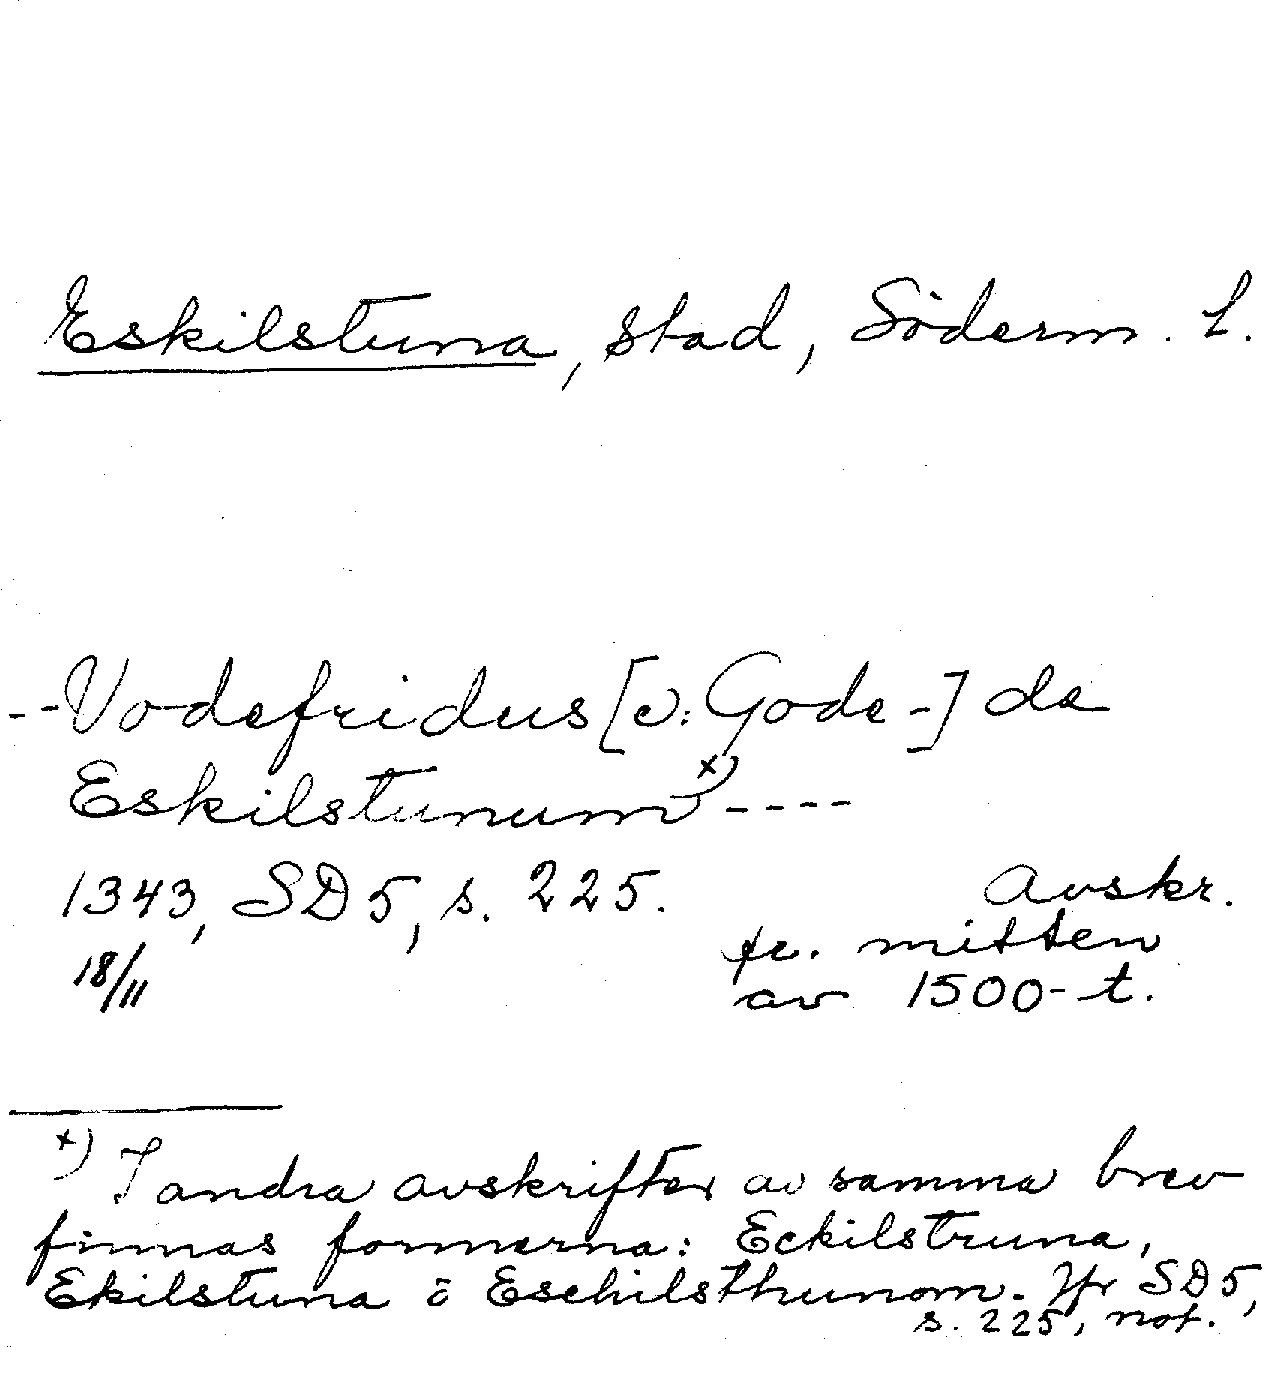 Eskilstuna, stad, Söderm. L.
--Vodefridus [ɔ: Gode-] de
Eskilstunum x) ----
1343, SD 5, s. 225.
Avskr.
fr. mitten
18/11
av 1500-t.
x) I andra avskrifter av samma brev
finnas formerna: Eckilstruna,
Ekilstuna o Eschilsthunom. Jfr SD 5,
s. 225, not.